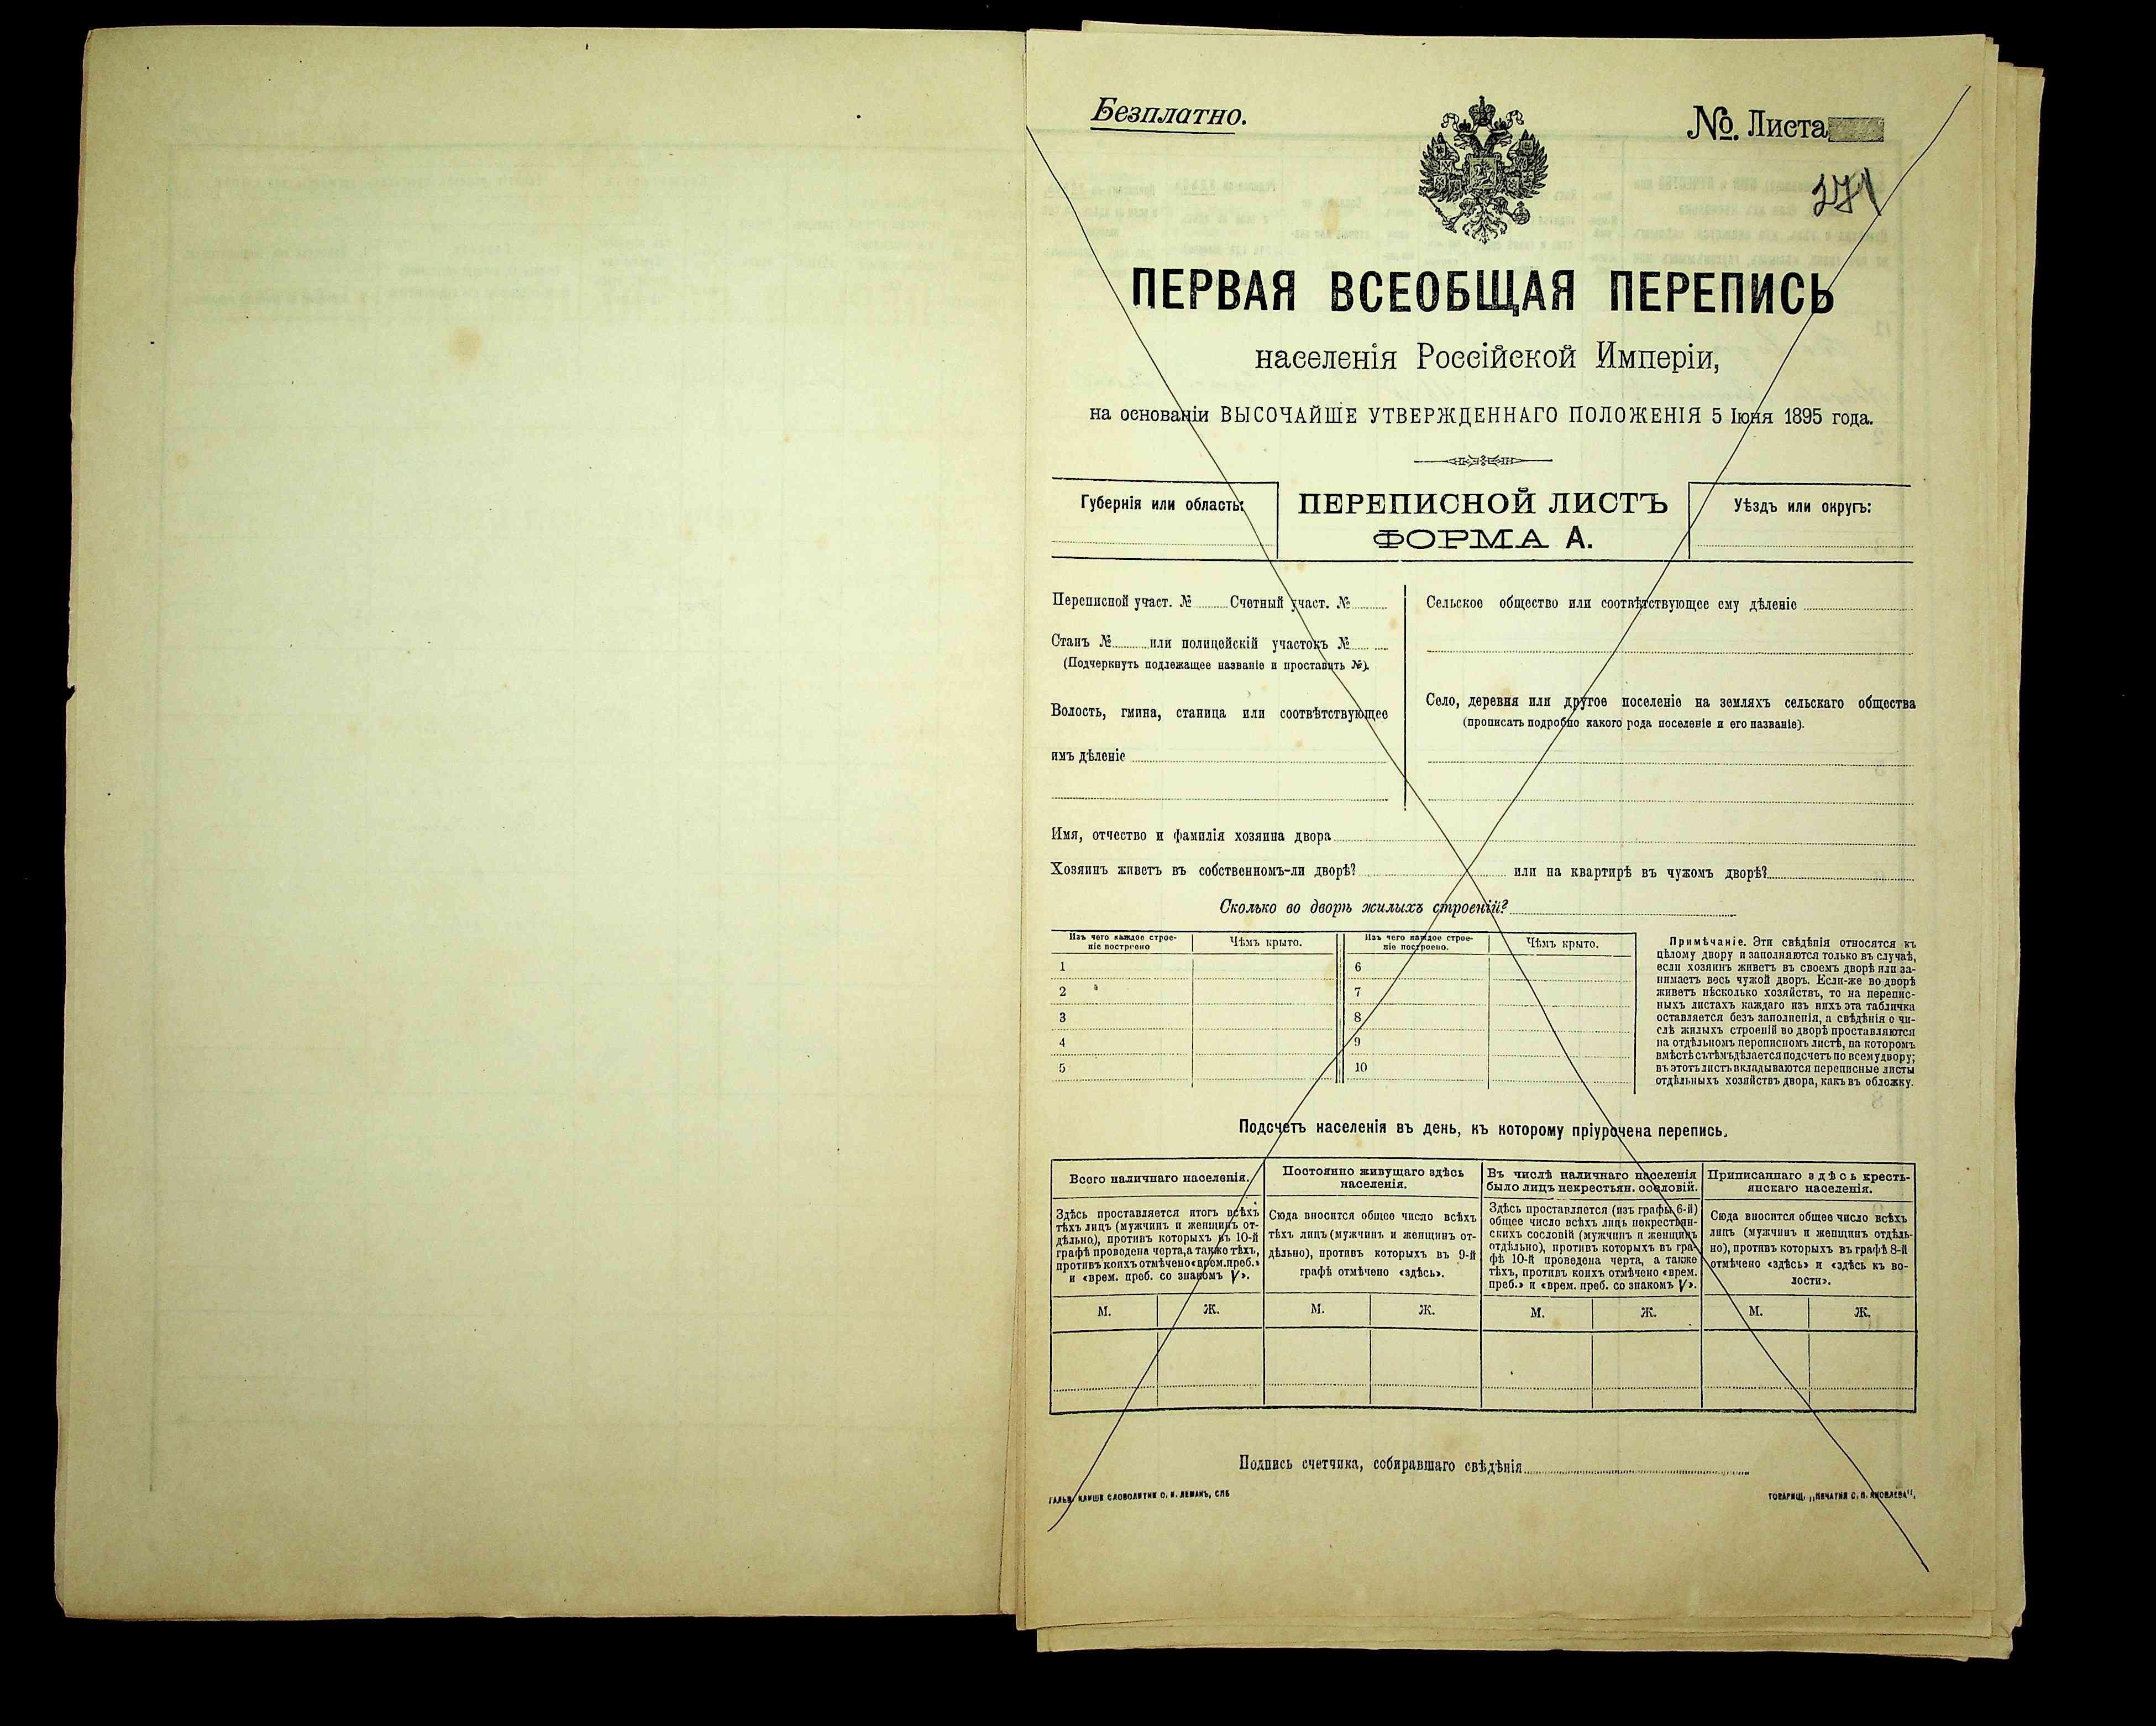 Безплатно.
№. Листа
271
ПЕРВАЯ ВСЕОБЩАЯ ПЕРЕПИСЬ
населенія Россійской Имперіи,
на основаніи ВЫСОЧАЙШЕ УТВЕРЖДЕННАГО ПОЛОЖЕНІЯ 5 Іюня 1895 года.
Губернія или область:
ПЕРЕПИСНОЙ ЛИСТЪ
ФОРМА А.
Уѣздъ или округъ:
Переписной участ. № Счетный участ. №
Станъ № или полицейскій участокъ №
(Подчеркнуть подлежащее названіе и проставить №).
Волость, гмина, станица или соотвѣтствующее
имъ дѣленіе
Сельское общество или соотвѣтствующее ему дѣленіе
Село, деревня или другое поселеніе на земляхъ сельскаго общества
(прописать подробно какого рода поселеніе и его названіе).
Имя, отчество и фамилія хозяина двора
Хозяинъ живетъ въ собственномъ-ли дворѣ? или на квартирѣ въ чужомъ дворѣ?
Сколько во дворѣ жилыхъ строеній?
Изъ чего каждое строе-
ніе построено
Чѣмъ крыто.
Изъ чего каждое строе-
ніе построено.
Чѣмъ крыто.
1
2
3
4
5
6
7
8
9
10
Примѣчаніе. Эти свѣдѣнія относятся къ
цѣлому двору и заполняются только въ случаѣ,
если хозяинъ живетъ въ своемъ дворѣ или за-
нимаетъ весь чужой дворъ. Если-же во дворѣ
живетъ нѣсколько хозяйствъ, то на перепис-
ныхъ листахъ каждаго изъ нихъ эта табличка
оставляется безъ заполненія, а свѣдѣнія о чи-
слѣ жилыхъ строеній во дворѣ проставляются
на отдѣльномъ переписномъ листѣ, на которомъ
вмѣстѣ съ тѣмъ дѣлается подсчетъ по всему двору;
въ этотъ листъ вкладываются переписные листы
отдѣльныхъ хозяйствъ двора, какъ въ обложку.
Подсчетъ населенія въ день, къ которому пріурочена перепись.
Всего наличнаго населенія.
Здѣсь проставляется итогъ всѣхъ
тѣхъ лицъ (мужчинъ и женщинъ от-
дѣльно), противъ которыхъ въ 10-й
графѣ проведена черта, а также тѣхъ,
противъ коихъ отмѣчено «врем. преб.»
и «врем. преб. со знакомъ V».
Постоянно живущаго здѣсь
населенія.
Сюда вносится общее число всѣхъ
тѣхъ лицъ (мужчинъ и женщинъ от-
дѣльно), противъ которыхъ въ 9-й
графѣ отмѣчено «здѣсь».
Въ числѣ наличнаго населенія
было лицъ некрестьян. сословій.
Здѣсь проставляется (изъ графы 6-й)
общее число всѣхъ лицъ некрестьян-
скихъ сословій (мужчинъ и женщинъ
отдѣльно), противъ которыхъ въ гра-
фѣ 10-й проведена черта, а также
тѣхъ, противъ коихъ отмѣчено «врем.
преб.» и «врем. преб. со знакомъ V».
Приписаннаго здѣсь кресть-
янскаго населенія.
Сюда вносится общее число всѣхъ
лицъ (мужчинъ и женщинъ отдѣль-
но), противъ которыхъ въ графѣ 8-й
отмѣчено «здѣсь» и «здѣсь къ во-
лости».
М. Ж. М. Ж. М. Ж. М. Ж.
Подпись счетчика, собиравшаго свѣдѣнія
ГАЛЬВ. КЛИШЕ СЛОВОЛИТНИ О. И. ЛЕМАНЪ, СПБ
ТОВАРИЩ. „ПЕЧАТНЯ С. П. ЯКОВЛЕВА".